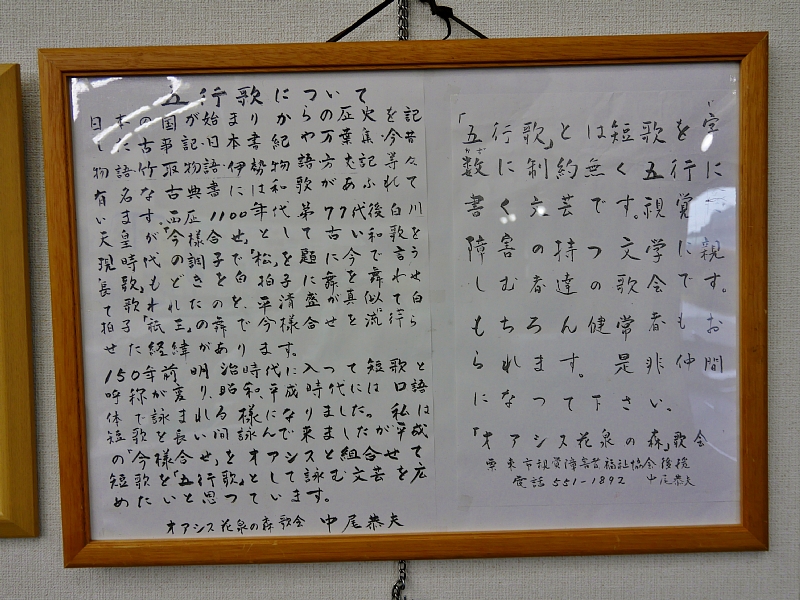 五行歌について
日本の国が始まりからの歴史を記
した古事記・日本書紀や万葉集・今昔
物語・竹取物語・伊勢物語方丈記等々
有名な古典書には和歌があふれて
います。西歴1100年代第77代後白川
天皇が「今様合せ」として古い和歌を
現時代の調子で「松」を題に今で言う
長歌」もどきを白拍子に舞を舞わせ
て歌われたのを、平清盛が真似て白
拍子「祇王」の舞で今様合せを流行ら
せた経緯があります。
150年前明治時代に入って短歌と
呼称が変り、昭和、平成時代には口語
体で詠まれる様になりました。私は
短歌を長い間詠んで来ましたが平成
の「今様合せ」をオアシスと組合せて
短歌を「五行歌」として詠む文芸を広
めたいと思っています。
オアシス花泉の森歌会 中尾恭夫
「五行歌」とは短歌を字
かず
数に制約無く五行に
書く文芸です。視覚
障害の持つ文学に親
しむ者達の歌会です。
もちろん健常者もお
られます。是非仲間
になって下さい。
「オアシス花泉の森」歌会
栗東市視覚障害者福祉協会後援
電話 551-1892 中尾恭夫